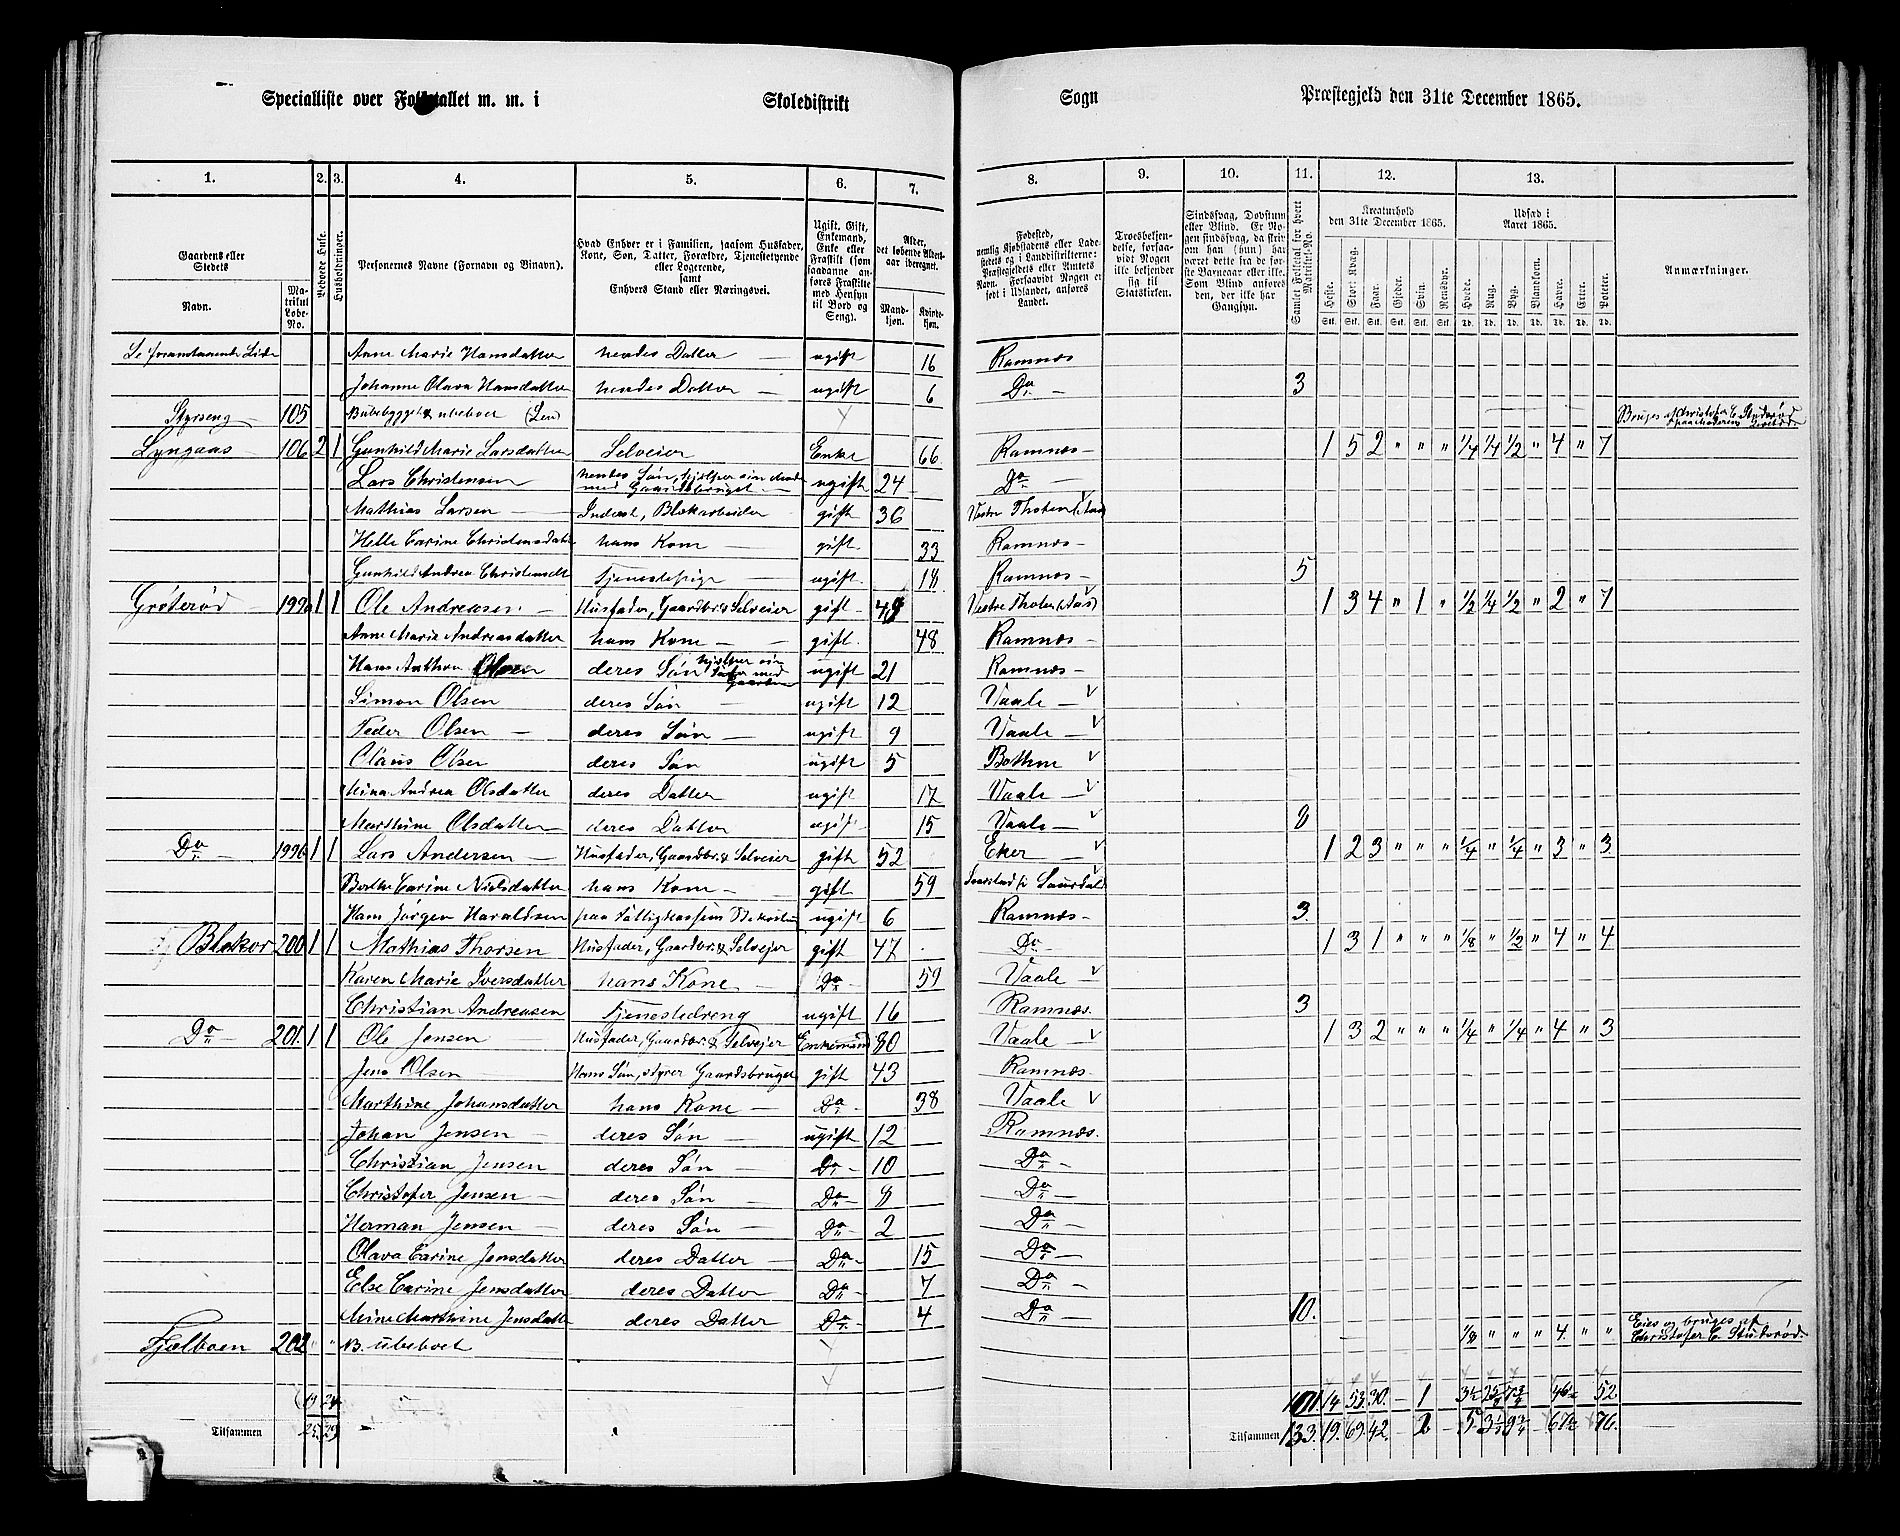 Specialliste over Folketallet m. m. i Skoledistrikt Sogn Præstegjeld den 31te December 1865.
1. 2. 3. 4. 5. 6. 7. 8. 9. 10. 11. 12. 13.
Gaardens eller Stedets
Navn. Matrikul Løbe-No.
Beboede Huse.
Husholdninger.
Personernes Navne (Fornavn og Binavn).
Hvad Enhver er i Familien, saasom Husfader, Kone, Søn, Datter, Forældre, Tjenestetyende eller Logerende, samt Enhvers Stand eller Næringsvei.
Ugift, Gift, Enkemand, Enke eller Fraskilt (som saadanne anføres Fraskilte med Hensyn til Bord og Seng).
Alder, det løbende Aldersaar iberegnet.
Mandkjøn. Kvindekjøn.
Fødested, nemlig Kjøbstadens eller Ladestedets og i Landdistrikterne: Præstegjeldets eller Amtets Navn. Forsaavidt Nogen er født i Udlandet, anføres Landet.
Troesbekjendelse, forsaavidt Nogen ikke bekjender sig til Statskirken.
Sindssvag, Døvstum eller Blind. Er Nogen sindssvag, da skrives dette fra de første Barneaar eller ikke. Som Blind anføres den, der ikke har Gangsyn.
Samlet Folketal for hvert Matrikul-No.
Kreaturhold den 31te December 1865.
Heste. Stort Kvæg. Faar. Gjeder. Svin. Rensdyr.
Udsæd i Aaret 1865.
Hvede. Rug. Byg. Blandkorn. Havre. Erter. Poteter.
Anmærkninger.
Anne Marie Hansdatter hendes Datter — ugift 16 Ramnæs
Johanne Olava Hansdatter hendes Datter — ugift 6 Do 3
Styrseng 105 Ubebygget & ubeboet
Lyngaas 106 2 1 Gunhild Marie Larsdatter Selveier Enke 66 Ramnæs 1 5 2 " " " 1/4 1/4 1/2 " 4 " 7
Lars Christensen ugift 24 Do
Mathias Larsen Inderst, gift 36 Vestre Thoten
Helle Carine Christensdatter hans Kone gift 33 Ramnæs
Gunhild Andrea Christensdt Tjenestepige ugift 18 Ramnæs 5
Grøterød 199a 1 1 Ole Andreasen Husfader, Gaardbr. & Selveier gift 49 Vestre Thoten 1 3 4 " 1 " 1/2 1/4 1/2 " 2 " 7
Anne Marie Andreasdatter hans Kone gift 48 Ramnæs
Hans Anthon Olsen deres Søn ugift 21 Ramnæs
Simon Olsen deres Søn ugift 12 Vaale
Peder Olsen deres Søn ugift 9 Vaale
Claus Olsen deres Søn ugift 5 Bothne
Mina Andrea Olsdatter deres Datter ugift 17 Vaale
Marthine Olsdatter deres Datter ugift 15 Vaale 8
Do 199b 1 1 Lars Andersen Husfader, Gaardbr. & Selveier gift 52 Eker 1 2 3 " " " 1/4 " 1/4 " 3 " 3
Berthe Carine Nielsdatter hans Kone gift 59
Hans Jørgen Haraldsen ugift 6 Ramnæs 3
200 1 1 Mathias Thorsen Husfader, Gaardbr. & Selvejer gift 47 Do 1 3 1 " " " 1/8 " 1/2 " 4 " 4
Karen Marie Iversdatter hans Kone Do 59 Vaale
Christian Andreasen Tjenestedreng ugift 16 Ramnæs. 3
Do 201 1 1 Ole Jensen Husfader, Gaardbr. & Selvejer Enkemand 80 Vaale 1 3 2 " " " 1/4 " 1/4 " 4 " 3
Jens Olsen Hans Søn, styrer Gaardsbruget gift 43 Ramnæs
Marthine Johansdatter hans Kone Do 38 Vaale
Johan Jensen deres Søn ugift 12 Ramnæs.
Christian Jensen deres Søn Do 10 Do
Christofer Jensen deres Søn Do 8 Do
Herman Jensen deres Søn Do 2 Do
Olava Carine Jensdatter deres Datter Do 15 Do
Else Carine Jensdatter deres Datter Do 7 Do
Mine Marthine Jensdatter deres Datter Do 4 Do 10.
Fjælboen 202 " " ubeboet 1/8 " " " 4 " " Eies og bruges af
Christofer C. Studsrød.
101 14 53 30 — 1
52
Tilsammen Tilsammen 133. 19. 69. 42. — 2 — 5 76.